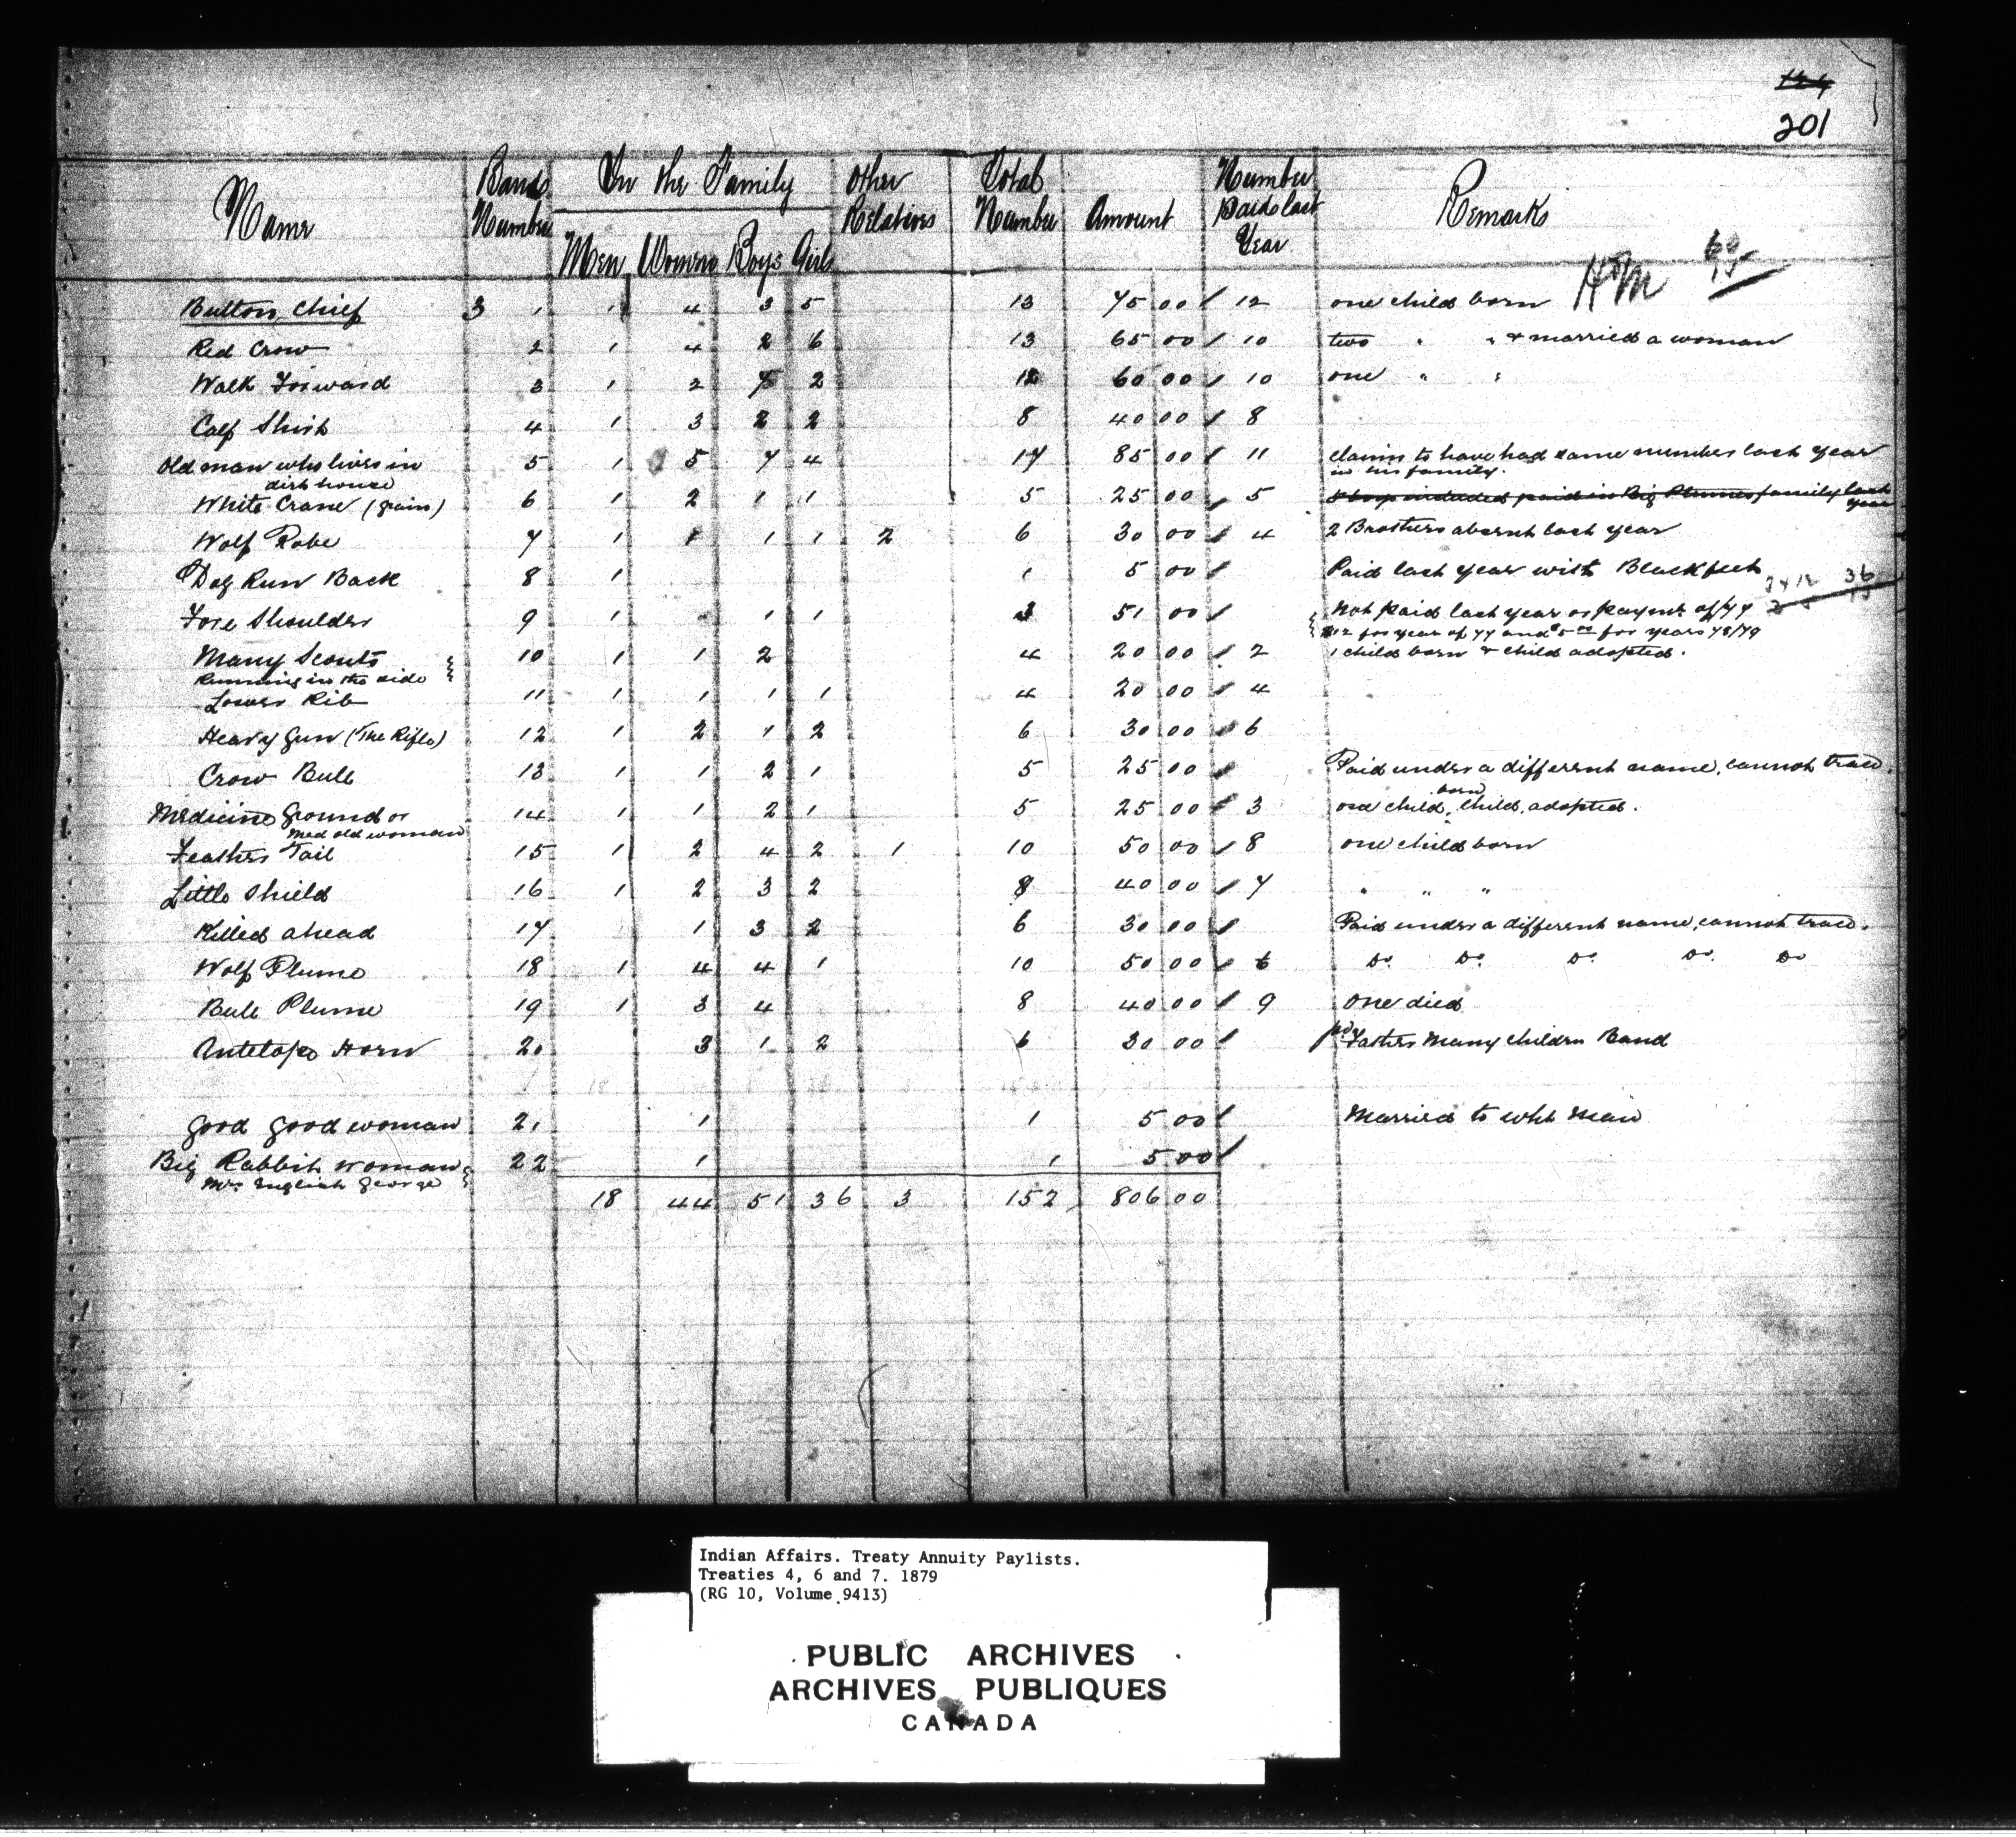 124
201
Name Band Number In the Family Other Relatives Total Number Amount Number Paid last Year Remarks
Men Women Boys Girls
Button Chief 3 1 1 4 3 5 13 75 00 12 one child born
Red Crow 2 1 4 2 6 13 65 00 10 two " " & married a woman
Walk Forward 3 1 2 7 2 12 60 00 10 one " "
Calf Shirt 4 1 3 2 2 8 40 00 8
Old man who lives in 5 1 5 7 4 17 85 00 11 claims to have had same number last year
dirt house in his family.
White Crane (grain) 6 1 2 1 1 5 25 00 5 included paid in Big Plumes family last year
Wolf Robe 7 1 1 1 1 2 6 30 00 4 2 Brothers absent last year
Dog Run Back 8 1 1 5 00 Paid last year with Blackfeet
Fore Shoulder 9 1 1 1 3 51 00 Not paid last year or paymt. of/77
$12 for year of 77 and $5 00 for years 78/79
Many Scouts 10 1 1 2 4 20 00 2 1 child born & child adopted.
Running in the side
Lower Rib 11 1 1 1 1 4 20 00 4
Heavy Gun (The Rifle) 12 1 2 1 2 6 30 00 6
Crow Bull 13 1 1 2 1 5 25 00 Paid under a different name, cannot trace.
Medicine Ground or 14 1 1 2 1 5 25 00 3 one child born, child adopted.
Med old woman
Feathers Tail 15 1 2 4 2 1 10 50 00 8 one child born
Little Shield 16 1 2 3 2 8 40 00 7 " " "
Killed ahead 17 1 3 2 6 30 00 Paid under a different name, cannot trace.
Wolf Plume 18 1 4 4 1 10 50 00 6 Do. Do. Do. Do. Do
Bull Plume 19 1 3 4 8 40 00 9 One died
Antelope Horn 20 3 1 2 6 30 00 pd. Fathers Many Children Band
Good Good woman 21 1 1 5 00 Married to wht man
Big Rabbit woman 22 1 1 5 00
Mrs. English George
18 44 51 36 3 152 806 00
Indian Affairs. Treaty Annuity Paylists.
Treaties 4, 6 and 7. 1879
(RG 10, Volume 9413)
PUBLIC ARCHIVES
ARCHIVES PUBLIQUES
CANADA